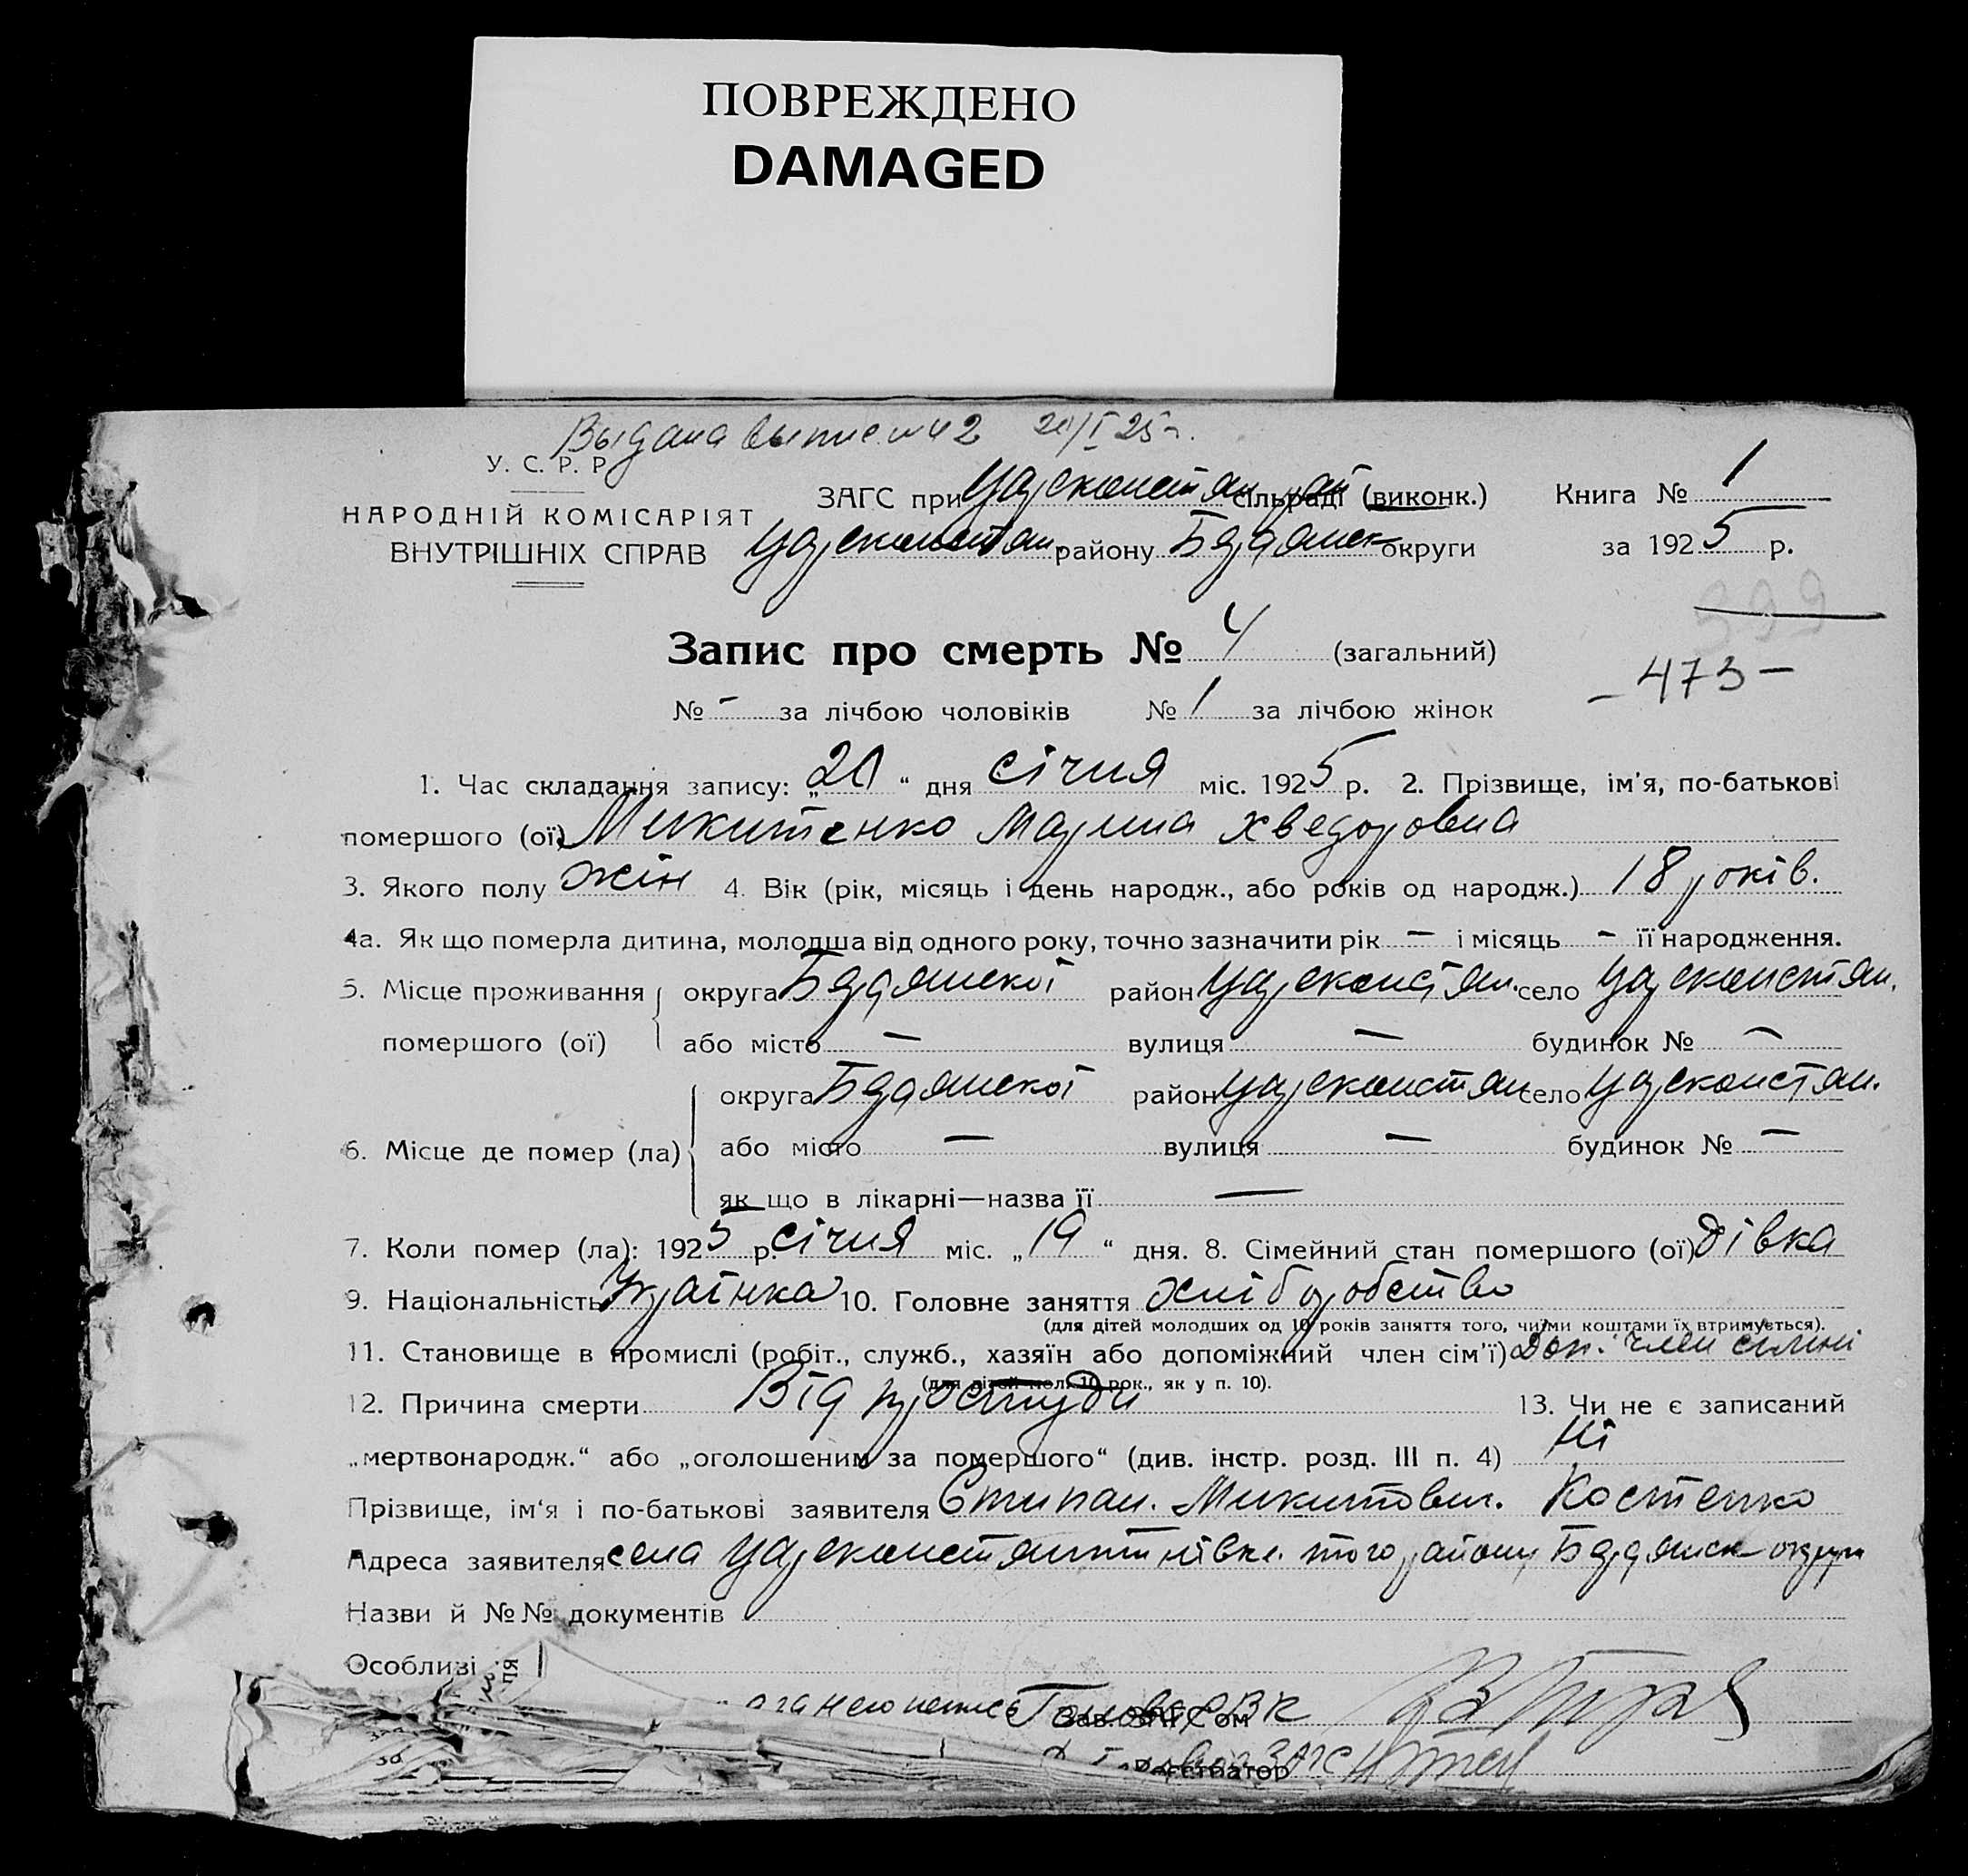 ПОВРЕЖДЕНО
DAMAGED
Выдана выписи 2 20/I 25 г.
У. С. Р. Р.
НАРОДНІЙ КОМІСАРІЯТ
ВНУТРІШНІХ СПРАВ
ЗАГС при Царсконстан рай сільраді (виконк.) Книга № 1
Царсконстан. району Бердянск округи за 1925 р.
399
Запис про смерть № 4 (загальний)
- 473 -
№ - за лічбою чоловіків № 1 за лічбою жінок
1. Час складання запису: „20“ дня січня міс. 1925 р. 2. Прізвище, ім'я, по-батькові
помершого (ої) Микитенко Марина Хведоровна
3. Якого полу жін 4. Вік (рік, місяць і день народж., або років од народж.) 18 років.
4а. Як що померла дитина, молодша від одного року, точно зазначити рік — і місяць - її народження.
5. Місце проживання округа Бердянскоі район Царсконстан. село Царсконстан.
помершого (ої) або місто — вулиця — будинок № —
округа Бердянскоі район Царсконстан село Царсконстан.
6. Місце де помер (ла) або місто — вулиця — будинок № —
як що в лікарні—назва її —
7. Коли помер (ла): 1925 р. січня міс. „19“ дня. 8. Сімейний стан помершого (ої) дівка
9. Національність Українка 10. Головне заняття хліборобство
(для дітей молодших од 10 років заняття того, чиїми коштами їх втримується).
11. Становище в промислі (робіт., служб., хазяїн або допоміжний член сім'ї) Доп. член сімні
(для дітей мол. 10 рок., як у п. 10).
12. Причина смерти Від простуди 13. Чи не є записаний
„мертвонародж.“ або „оголошеним за помершого“ (див. інстр. розд. III п. 4) Ні
Прізвище, ім'я і по-батькові заявителя Стипан. Микитович. Костенко
Адреса заявителя села Царсконстянтинівки того району Бердянск округи
Назви й №№ документів
Особливі
Голова РВК
Зав. ЗАГС'ом
ЗАГС
Реєстратор